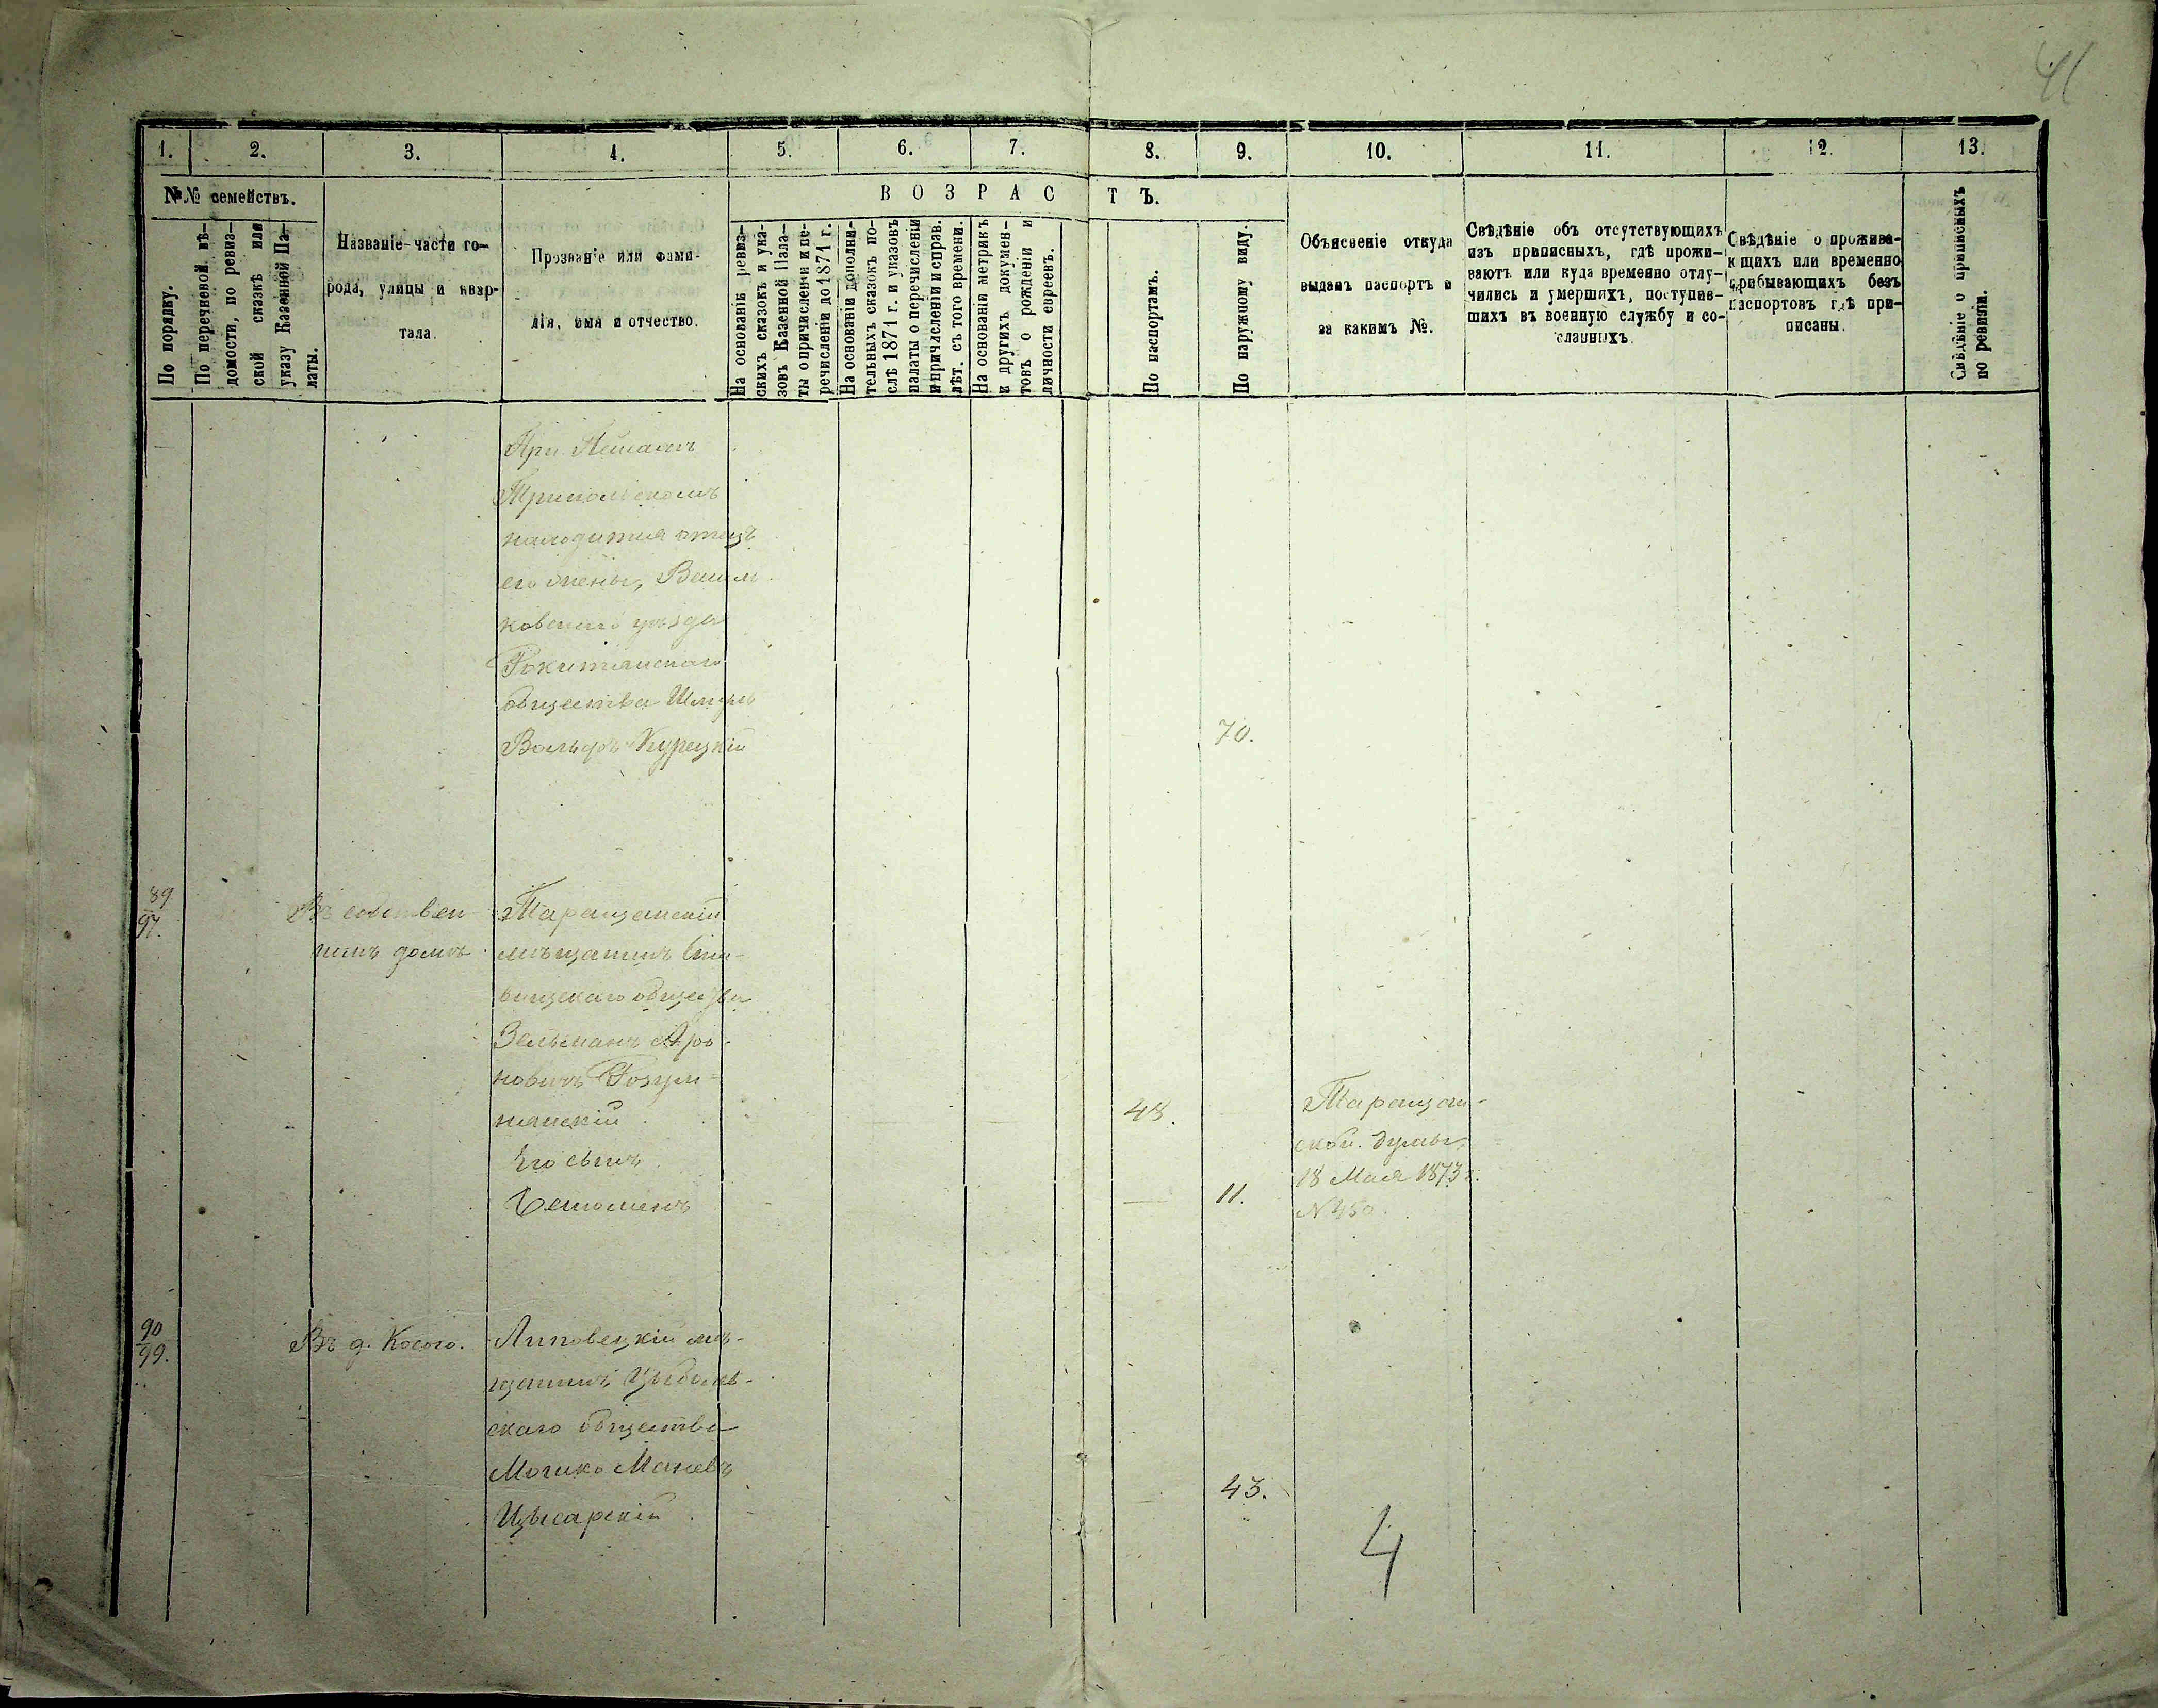 41
1. 2. 3. 4. 5. 6. 7. 8. 9. 10. 11. 12. 13.
№№ семействъ.
По порядку.
По перечневой вѣ-
домости, по ревиз-
ской сказкѣ или
указу Казенной Па-
латы.
Названіе части го-
рода, улицы и квар-
тала.
Прозваніе или фами-
лія, имя и отчество.
ВОЗРАСТЪ.
На основаніи ревиз-
скихъ сказокъ и ука-
зовъ Казенной Пала-
ты о причисленіи и пе-
речисленіи до 1871 г.
На основаніи дополни-
тельныхъ сказокъ по-
слѣ 1871 г. и указовъ
палаты о перечисленіи
и причисленіи и справ.
лѣт. съ того времени.
На основаніи метрикъ
и другихъ докумен-
товъ о рожденіи и
личности евреевъ.
По паспортамъ.
По наружному виду.
Объясненіе откуда
выданъ паспортъ и
за какимъ №.
Свѣдѣніе объ отсутствующихъ
изъ приписныхъ, гдѣ прожи-
ваютъ или куда временно отлу-
чились и умершихъ, поступив-
шихъ въ военную службу и со-
сланныхъ.
Свѣдѣніе о прожива-
ющихъ или временно
прибывающихъ безъ
паспортовъ гдѣ при-
писаны.
Свѣдѣніе о приписныхъ
по ревизіи.
При
находится отецъ
его жены, Василь
ковскаго уѣзда
Рокитянскаго
общества Шмуль
Вольфъ Курецкій
70.
89
97.
Въ собствен
номъ домѣ
Таращанскій
мѣщанинъ Ста-
вищскаго общества
Зельманъ Аро-
новичъ Розум-
нянскій
48.
Его сынъ
11.
Таращан-
ской думы
18 Мая 1873 г.
№ 450.
90
99.
Въ д. Косого.
Липовецкій мѣ-
щанинъ Цыбулев-
скаго общества
Мошко
Цысарскій
43.
4